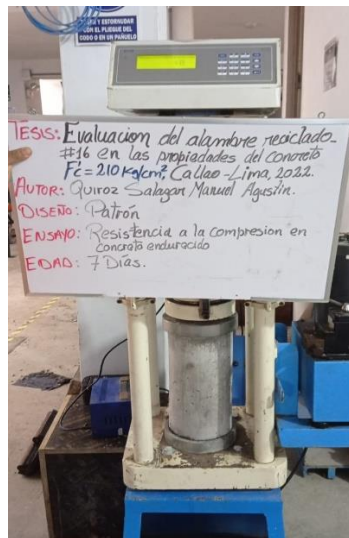 Y ESTORNUDAR
CON EL PLIEGUE DEL
CODO O EN UN PAÑUELO
TESIS: Evaluacion del alambre reciclado
#16 en las propiedades del concreto
F'c = 210 Kg/cm², Callao - Lima, 2022.
AUTOR: Quiroz Salazar Manuel Agustin.
DISEÑO: Patrón
ENSAYO: Resistencia a la compresion en
concreto endurecido
EDAD: 7 Días.